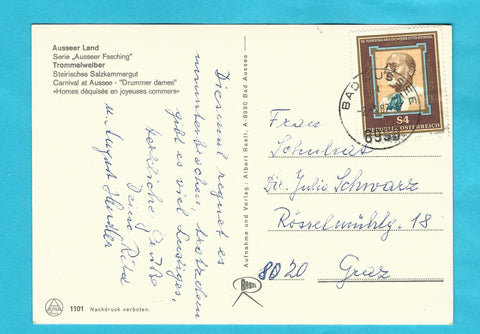 Ausseer Land
Serie „Ausseer Fasching"
Trommelweiber
Steirisches Salzkammergut
Carnival at Aussee - "Drummer dames"
«Homes déquisés en joyeuses commers»
Diesmal regnet es
ununterbrochen trotzdem
gibt es viel Lustiges.
Herzliche Grüße
Deine
u. August
Aufnahme und Verlag: Albert Rastl, A-8990 Bad Aussee
RASTL
BAD AUSSEE
8990
S4
REPUBLIK ÖSTERREICH
Frau
Schulrat
Dir. Julia Schwarz
Rösselmühlg. 18
8020 Graz
1101 Nachdruck verboten.